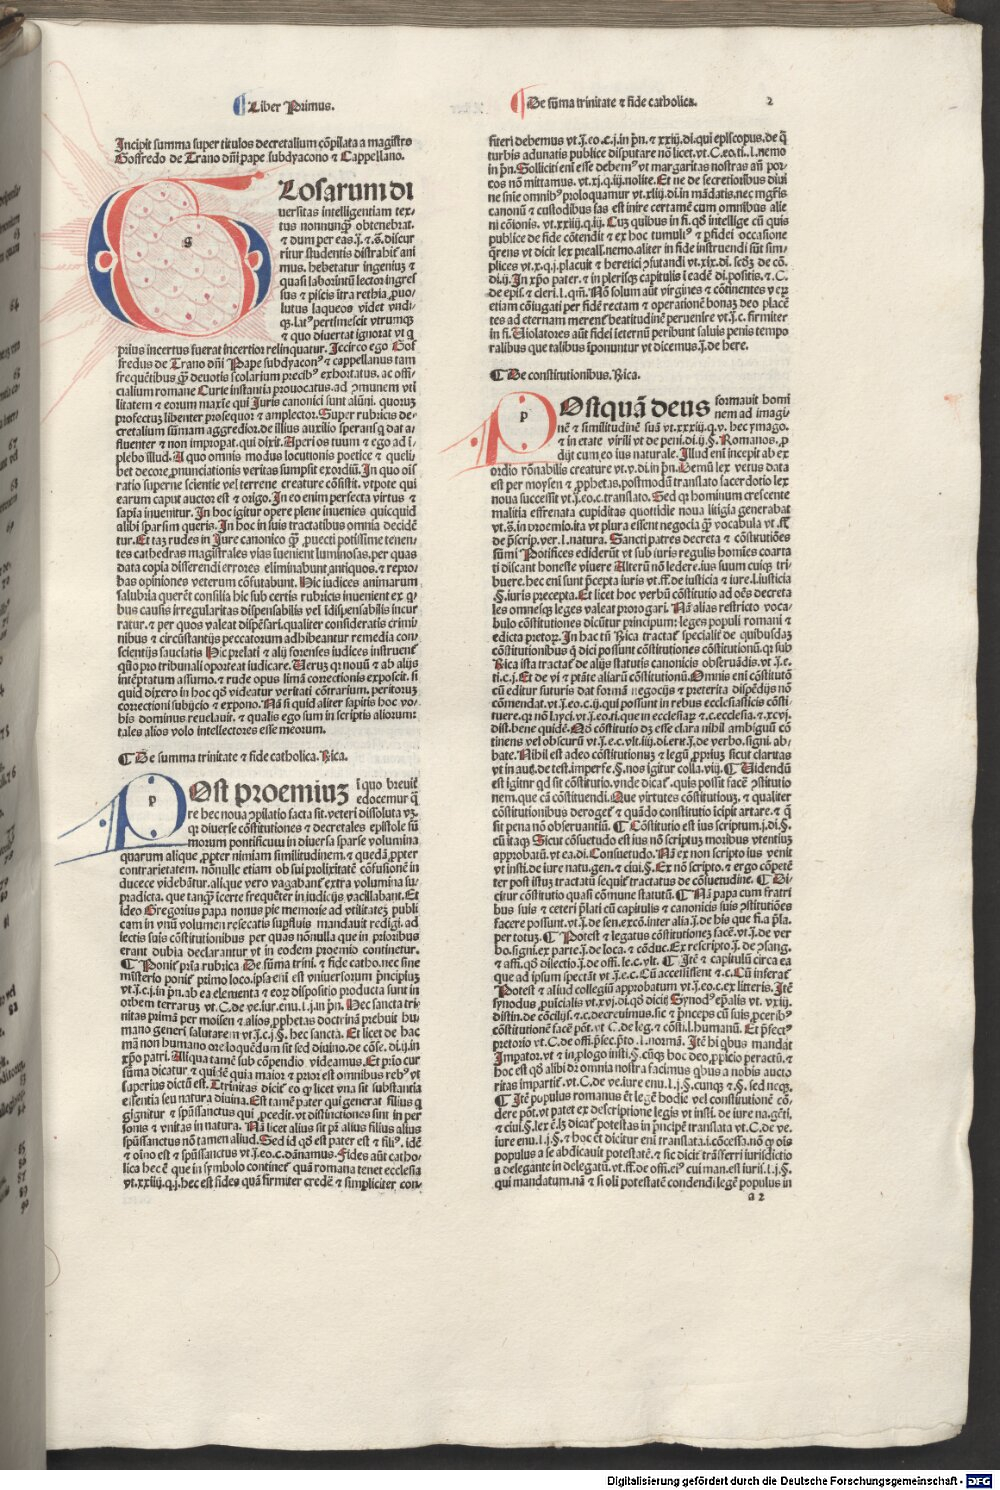 Liber Primus.
De sūma trinitate ⁊ fide catholica. 2
Incipit summa super titulos decretalium cōpilata a magistro
Goffredo de Trano dn̄i pape subdyacono ⁊ Cappellano.
GLosarum di
uersitas intelligentiam tex⸗
tus nonnunqᷓ obtenebrat.
⁊ dum per eas.j̄. ⁊ .s̄. discur
ritur studentis distrahit̄ ani
mus. hebetatur ingeniuꝫ ⁊
quasi laborintū lector ingres
sus ⁊ piscis ītra rethia ꝓuo⸗
lutus laqueos videt vndi⸗
qꝫ. latꝰ pertimescit vtrumqꝫ
⁊ quo diuertat ignorat vt q
prius incertus fuerat incertior relinquatur. Iccirco ego Gof
fredus de Trano dn̄i Pape subdyaconꝰ ⁊ cappellanus tam
frequētibus qᷓ deuotis scolarium precibꝰ exhortatus. ac offi⸗
cialium romane Curie instantia prouocatus. ad ꝯmunem vti
litatem ⁊ eorum maxīe qui Juris canonici sunt alūni. quoruꝫ
profectuꝫ libenter prosequor ⁊ amplector. Super rubricis de⸗
cretalium sūmam aggredior. de illius auxilio speransꝗ dat af
fluenter ⁊ non impropat. qui dixit. Aperi os tuum ⁊ ego ad ī⸗
plebo illud. A quo omnis modus locutionis poetice ⁊ queli⸗
bet decore ꝓnunciationis veritas sumpsit exordiū. In quo oīs
ratio superne scientie vel terrene creature cōsistit. vtpote qui
earum caput auctor est ⁊ origo. In eo enim perfecta virtus ⁊
sapīa inuenitur. In hoc igitur opere plene inuenies quicquid
alibi sparsim queris. In hoc in suis tractatibus omnia decidē⸗
tur. Et taꝫ rudes in Jure canonico qᷓ ꝓuecti potissime tenen⸗
tes cathedras magistrales vias īuenient luminosas. per quas
data copia disserendi errores eliminabunt antiquos. ⁊ repro⸗
bas opiniones veterum cōfutabunt. Hic iudices animarum
salubria querēt consilia hic sub certis rubricis inuenient ex q̄⸗
bus causis irregularitas dispensabilis vel īdispensabilis incur
ratur. ⁊ per quos valeat dispēsari. qualiter consideratis crimi
nibus ⁊ circūstantijs peccatorum adhibeantur remedia con⸗
scientijs sauciatis Hic prelati ⁊ alij forenses iudices instruent̄
qūo pro tribunali oporteat iudicare. Veruꝫ qꝛ nouū ⁊ ab alijs
intēptatum assumo. ⁊ rude opus limā correctionis exposcit. si
quid dixero in hoc qd̄ videatur veritati cōtrarium. peritoruꝫ
correctioni subijcio ⁊ expono. Nā si quid aliter sapitis hoc vo⸗
bis dominus reuelauit. ⁊ qualis ego sum in scriptis aliorum:
tales alios volo intellectores esse meorum.
¶ De summa trinitate ⁊ fide catholica. Rica.
POst proemiuꝫ
ī quo breuit̄
edocemur q̄
re hec noua ꝯpilatio facta sit. veteri dissoluta vꝫ.
qꝛ diuerse cōstitutiones ⁊ decretales epistole sū
morum pontificuu in diuersa sparse volumina
quarum alique ꝓpter nimiam similitudinem. ⁊ quedā ꝓpter
contrarietatem. nonnulle etiam ob sui prolixitatē cōfusionē in
ducece videbātur. alique vero vagabant̄ extra volumina su⸗
pradicta. que tanqᷓ incerte frequēter in iudicijs vacillabant. Et
ideo Gregorius papa nonus pie memorie ad vtilitateꝫ publi
cam in vnū volumen resecatis supfluis mandauit redigi. ad
iectis suis cōstitutionibus per quas nōnulla que in prioribus
erant dubia declarantur vt in eodem proemio continetur.
¶ Ponit̄ prīa rubrica De sūma trini. ⁊ fide catho. nec sine
misterio ponit̄ primo loco. ipsa enī est vniuersorum pͥncipiuꝫ
vt.j̄.c.j. in pͥn. ab ea elementa ⁊ eoꝝ dispositio producta sunt in
orbem terraruꝫ vt. C. de ve. iur. enu. l.j. in pͥn. Hec sancta tri⸗
nitas primā per moisen ⁊ alios ꝓphetas doctrinā prebuit hu⸗
mano generi salutarem vt.j̄.c.j.§. hec sancta. Et licet de hac
mā non humano ore loquēdum sit sed diuino. de cōse. di.ij. in
xp̄o patri. Aliqua tamē sub cōpendio videamus. Et prīo cur
sūma dicatur ⁊ quidē quia maior ⁊ prior est omnibus rebꝰ vt
saperius dictū est. Ttrinitas dicit̄ eo ꝙ licet vna sit substantia
essentia seu natura diuina. Est tamē pater qui generat filius q̄
gignitur ⁊ spūssanctus qui ꝓcedit. vt distinctiones sint in per
sonis ⁊ vnitas in natura. Nā licet alius sit pr̄ alius filius alius
spūssanctus nō tamen aliud. Sed id qd̄ est pater est ⁊ filiꝰ. idē
⁊ oīno est ⁊ spūssanctus vt.j̄.eo.c.dānamus. Fides aūt catho⸗
lica hec ē que in symbolo continet̄ quā romana tenet ecclesia
vt.xxiiij.q.j. hec est fides quā firmiter credē ⁊ simpliciter con⸗
fiteri debemus vt.j̄.eo.c.j. in pͥn. ⁊ xxiij.di. qui episcopus. de q̄
turbis adunatis publice disputare nō licet. vt. C. eo. ti. l. nemo
in pͥn. Solliciti enī esse debemꝰ vt margaritas nostras an̄ por⸗
cos nō mittamus. vt.xj.q.iij. nolite. Et ne de secretioribus diui
ne sn̄ie omnibꝰ proloquamur vt.xliij.di. in mādatis. nec mgr̄is
canonū ⁊ custodibus fas est inire certamē cum omnibus alie
ni cōionis. vt.xxiiij.q.iij. Cuꝫ quibus in fi. qd̄ intellige cū quis
publice de fide cōtendit ⁊ ex hoc tumultꝰ ⁊ ꝑfidei occasione
q̄rens vt dicit lex preall. nemo. aliter in fide instruendi sūt sim⸗
plices vt.x.q.j. placuit ⁊ heretici ꝯfutandi vt.xix.di. scd̄ꝫ de cō.
di.ij. In xp̄o pater. ⁊ in plerisqꝫ capitulis ī eadē di. positis. ⁊ .C.
de epīs. ⁊ cleri. l. qm̄. Nō solum aūt virgines ⁊ cōtinentes veꝝ
etiam cōiugati per fidē rectam ⁊ operationē bonaꝫ deo placē
tes ad eternam merent̄ beatitudinē peruenire vt.j̄.c. firmiter
in fi. Violatores aūt fidei īeternū peribunt saluis penis tempo
ralibus que talibus īponuntur vt dicemus.j̄. de here.
¶ De constitutionibus. Rica.
POstquā deus formauit homi
nem ad imagi⸗
nē ⁊ similitudinē suā vt.xxxiij.q.v. hec ymago.
⁊ in etate virili vt de peni. di.ij.§. Romanos. ꝓ
dijt cum eo ius naturale. Illud enī incepit ab ex
ordio rōnabilis creature vt.v.di. in pͥn. Demū lex vetus data
est per moysen ⁊ ꝓphetas. postmodū translato sacerdotio lex
noua successit vt.j̄.eo.c. translato. Sed qꝛ hominum crescente
malitia effrenata cupiditas quottidie noua litigia generabat
vt.s̄. in proemio. ita vt plura essent negocia qᷓ vocabula vt ff̄
de p̄scrip. ver. l. natura. Sancti patres decreta ⁊ cōstitutiōes
sūmi Pontifices ediderūt vt sub iuris regulis homīes coarta
ti discant honeste viuere Alterū nō ledere. ius suum cuiqꝫ tri⸗
buere. hec enī sunt p̄cepta iuris vt. ff. de iusticia ⁊ iure. l. iusticia
.§. iuris precepta. Et licet hoc verbū constitutio ad oēs decreta
les omnesqꝫ leges valeat prorogari. Nā alias restricto voca⸗
bulo constitutiones dicūtur principum: leges populi romani ⁊
edicta pretoꝝ. In hac tn̄ Rica tractat̄ specialit̄ de quibusdaꝫ
cōstitutionibus q̄ dici possunt cōstitutiones cōstitutionū. qꝛ sub
Rica ista tractat̄ de alijs statutis canonicis obseruādis. vt.j̄.e.
ti.c.j. Et de vi ⁊ ptāte aliarū cōstitutionū. Omnis enī cōstitutō
cū editur futuris dat formā negocijs ⁊ preterita dispēdijs nō
cōmendat. vt.j̄.eo.c.ij. qui possunt in rebus ecclesiasticis cōsti⸗
tuere. qꝛ nō layci. vt.j̄.eo.ti. que in ecclesiaꝝ ⁊ .c. ecclesia. ⁊ .xcvj.
dist. bene quidē. Nō cōstitutio dꝫ esse clara nihil ambiguū cō
tinens vel obscurū vt.j̄.e.c.vlt. iiij.di. erit.j̄. de verbo. signi. ab⸗
bate. Nihil est adeo cōstitutionuꝫ ⁊ legū ꝓpriuꝫ sicut claritas
vt in aut̄. de test. imperfe. §. nos igitur colla. viij. ¶ Videndū
est iginr qd sit cōstitutio. vnde dicat̄. quis possit facē ꝯstitutio
nem. que cā cōstituendi. Que virtutes cōstitutiouꝫ. ⁊ qualiter
cōstitutionibus deroget̄ ⁊ quādo constitutio īcipit artare. ⁊ q̄
sit pena nō obseruantiū. ¶ Cōstitutio est ius scriptum. j.di.§.
cū itaqꝫ. Sicut cōsuetudo est ius nō scriptuꝫ moribus vtentiuꝫ
approbatū. vt ea. di. Consuetudo. Nā ex non scripto ius venit
vt insti. de iure natu. gen. ⁊ ciui.§. Ex nō scripto. ⁊ ergo cōpetē
ter post istuꝫ tractatū sequit̄ tractatus de cōsuetudine. ¶ Di⸗
citur cōstitutio quasi cōmune statutū. ¶ Nā papa cum fratri
bus suis ⁊ ceteri p̄lati cū capitulis ⁊ canonicis suis ꝯstitutiōes
facere possunt. vt.j̄. de sen. excō. inter alia.j̄. de his que fi. a p̄la.
per totuꝫ. ¶ Potest ⁊ legatus cōstitutioneꝫ facē. vt.j̄. de ver
bo. signi. ex parte.j̄. de loca. ⁊ cōduc. Ex rescripto.j̄. de ꝯsang.
⁊ affi. qd̄ dilectio.j̄. de offi. le.c.vlt. ¶ Itē ⁊ capitulū circa ea
que ad ipsum spectāt vt.j̄.e.c. Cū accessissent ⁊ .c. Cū inferat̄
Potest ⁊ aliud collegiū approbatum vt.j̄.eo.c. ex litteris. Itē
synodus ꝓuīcialis vt.xvj.di. qd̄ dicit̄ Synodꝰ ep̄alis vt.xviij.
distin. de cōcilijs. ⁊ .c. decreuimus. sic ⁊ pͥnceps cū suis ꝓceribꝰ
cōstitutionē facē pōt. vt C. de leg. ⁊ cōsti. l. humanū. Et p̄fectꝰ
pretorio vt. C. de offi. p̄fec. p̄to. l. normā. Itē hi qbus mandat
Impator. vt ⁊ in ꝓlogo insti.§. cūqꝫ hoc deo ꝓpicio peractū. ⁊
hoc est qd̄ alibi dr̄ omnia nostra facimus qbus a nobis aucto
ritas impartit̄. vt. C. de ve. iure enu. l.j.§. cunqꝫ ⁊ §. sed neqꝫ.
¶ Itē populus romanus et̄ legē hodie vel constitutionē cō⸗
dere pōt. vt patet ex descriptione legis vt insti. de iure na. gēti.
⁊ ciui.§. lex ē. lꝫ dicat̄ potestas in pͥncipē translata vt. C. de ve.
iure enu. l.j.§. ⁊ hoc et̄ dicitur enī translata. i. cōcessa. nō ꝙ oīs
populus a se abdicauit potestatē. ⁊ sic dicit̄ trāsferri iurisdictio
a delegante in delegatū. vt. ff. de offi. eiꝰ cui man. est iuris. l.j.§.
qui mandatum. nā ⁊ si oli potestatē condendi legē populus in
a 2
Digitalisierung gefördert durch die Deutsche Forschungsgemeinschaft - DFG